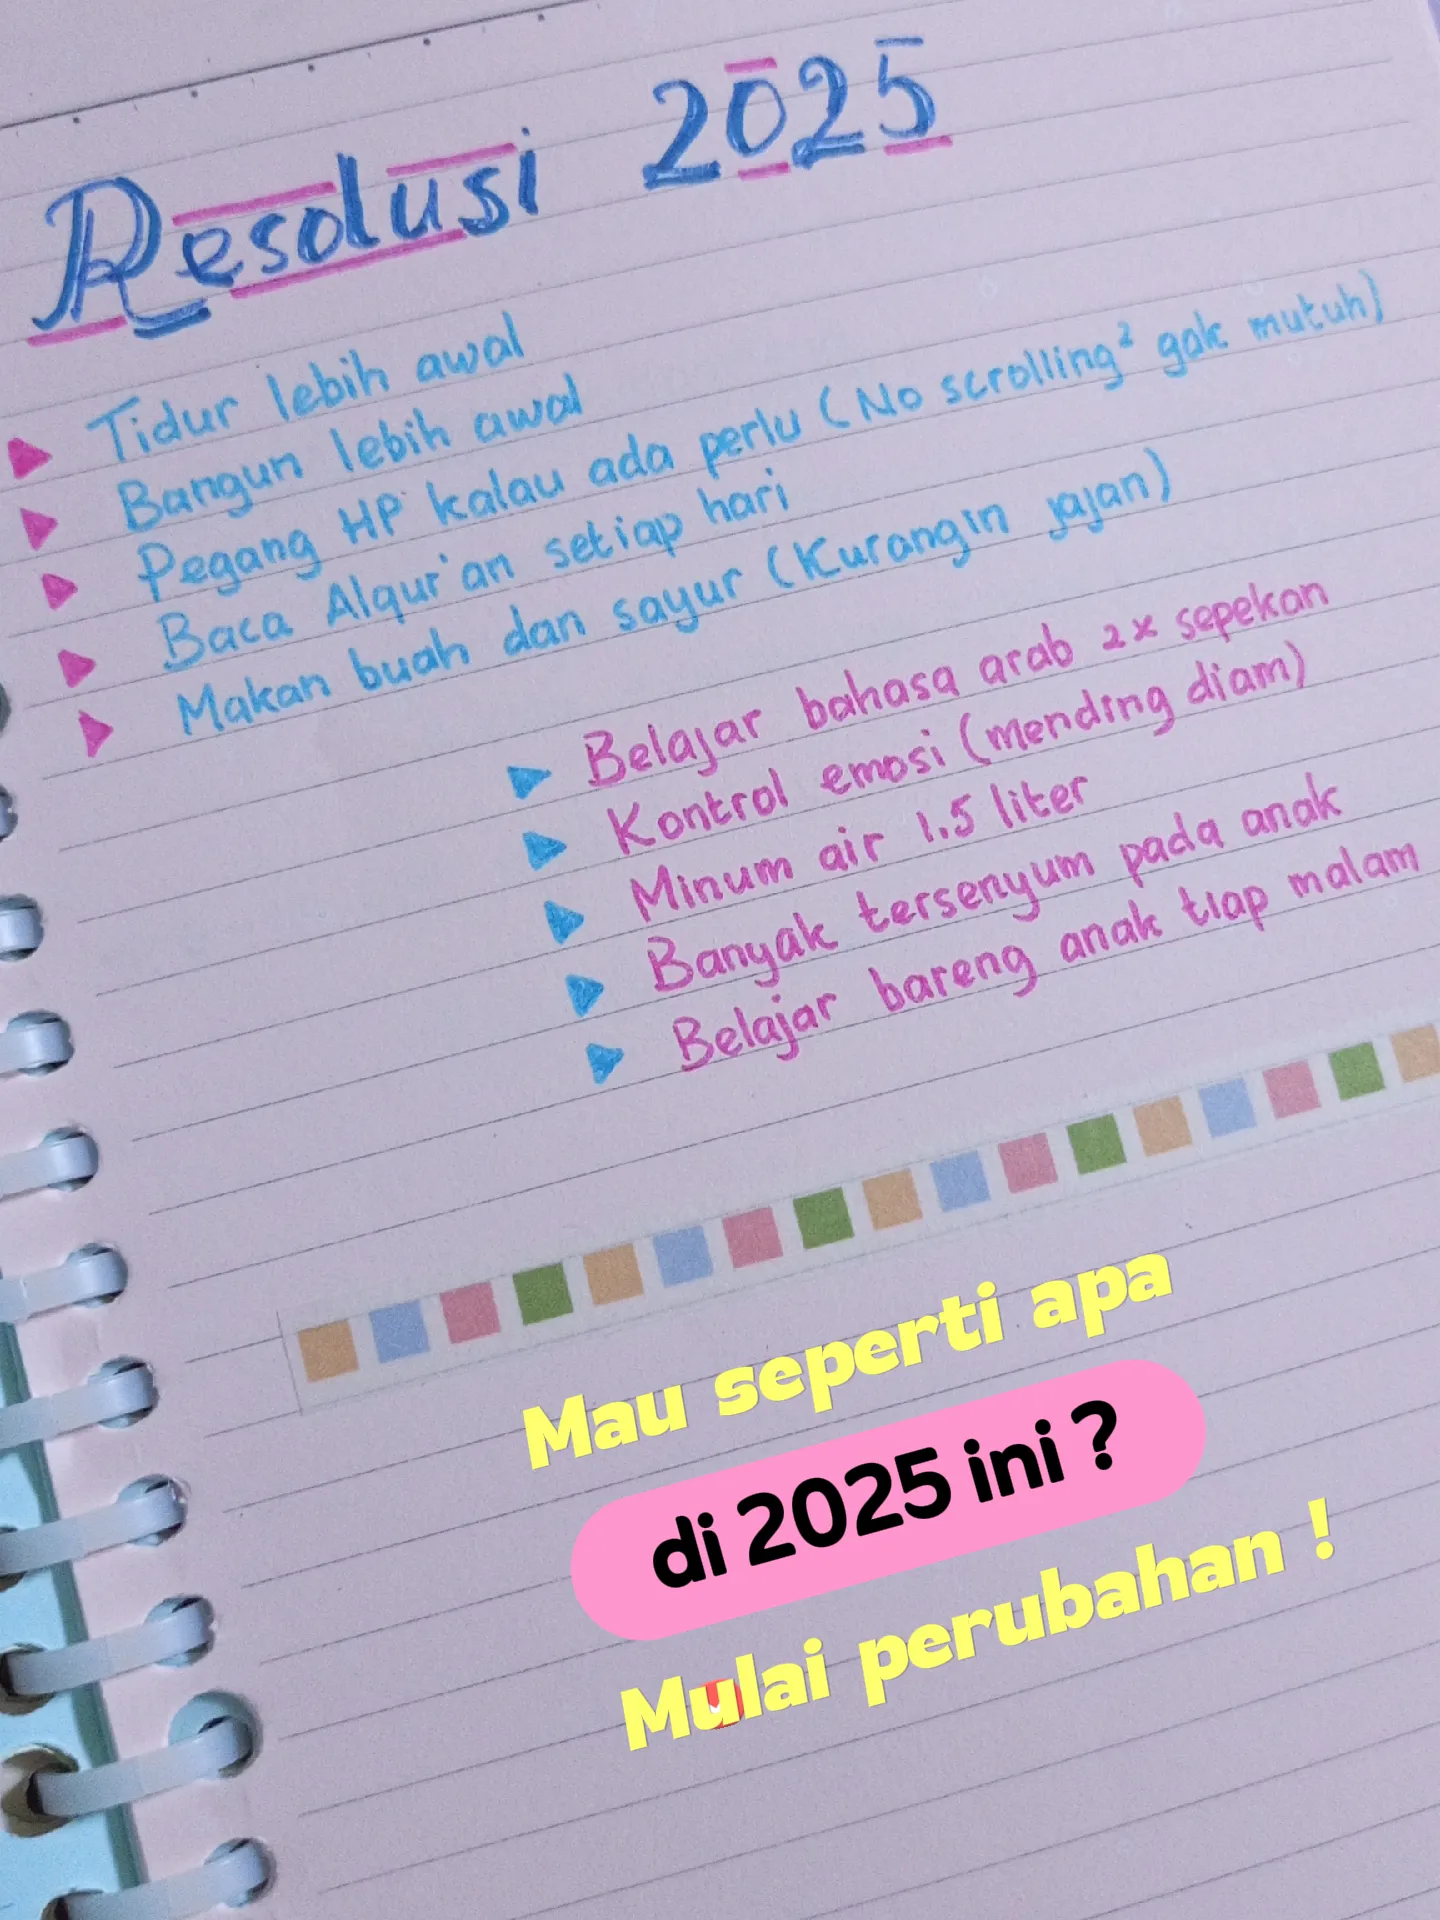 Resolusi 2025
Tidur lebih awal
Bangun lebih awal
Pegang HP kalau ada perlu (No scrolling² gak mutuh)
Baca Alqur'an setiap hari
Makan buah dan sayur (Kurangin jajan)
Belajar bahasa arab 2x sepekan
Kontrol emosi (mending diam)
Minum air 1.5 liter
Banyak tersenyum pada anak
Belajar bareng anak tiap malam
Mau seperti apa
di 2025 ini ?
Mulai perubahan !